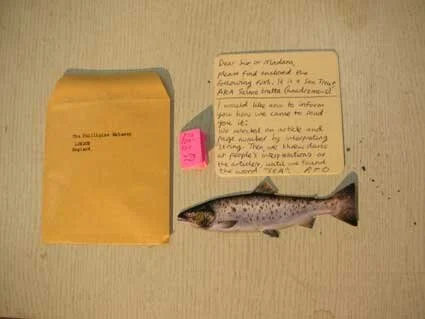 The Phillipine Embassy
LONDON
England
Dear Sir or Madam,
please find enclosed the
following fish. It is a Sea Trout
AKA Salmo trutta
I would like now to inform
you how we came to send
you it:
We selected an article and
page number by interpreting
string. Then we threw darts
at people's interpretations of
the article, until we found
the word "SEA". PTO